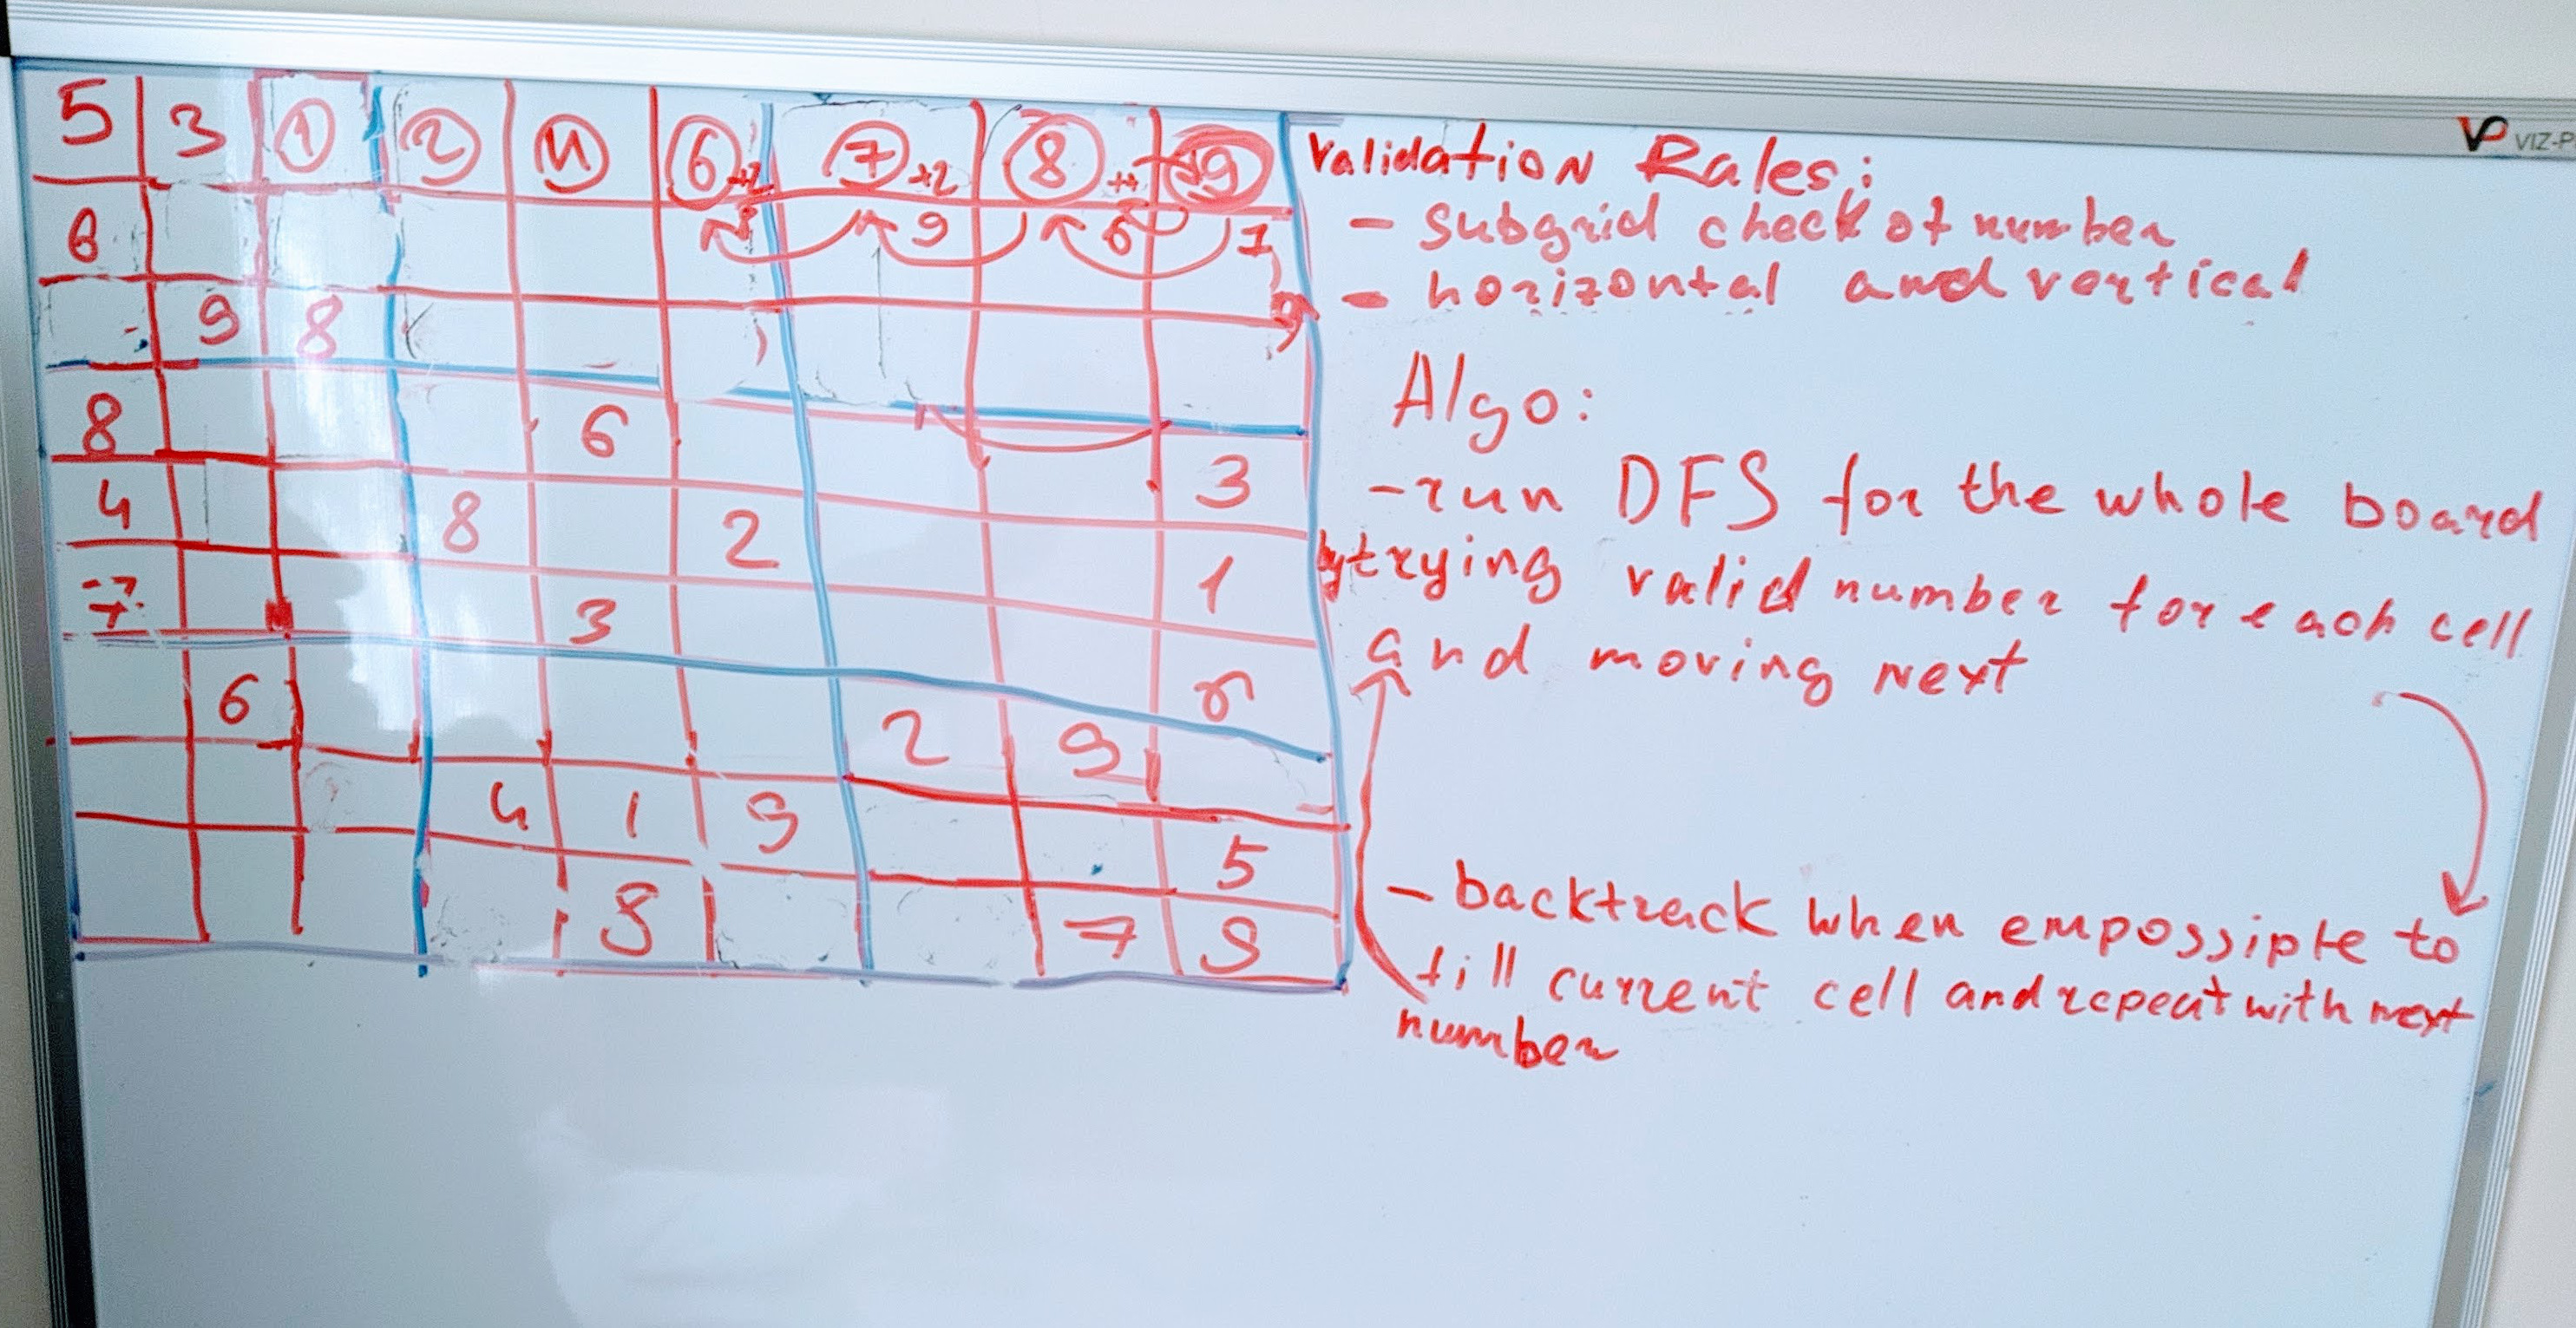 VIZ-P
5 3 1 2 4 6 +2 7 +2 8 ++ 9
6 8 9 6 1
9 8
8 6 3
4 8 2 1
7 3
6 2 9
4 1 9 5
8 7 9
Validation Rales:
- subgrid check of number
- horizontal and vertical
Algo:
- run DFS for the whole board
by trying valid number for each cell
and moving next
- backtrack when empossiple to
fill current cell and repeat with next
number